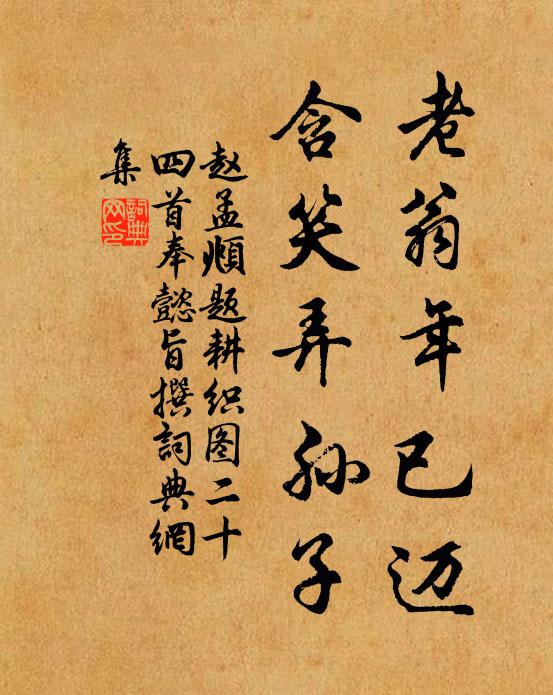 老翁年已迈
含笑弄孙子
赵孟頫题耕织图二十
四首奉懿旨撰詞典網
集
詞典网印